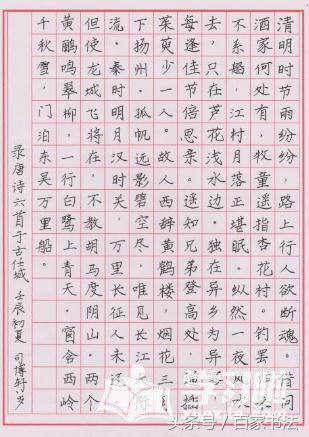 清明时节雨纷纷，路上行人欲断魂。借问
酒家何处有，牧童遥指杏花村。钓罢归来
不系船，江村月落正堪眠。纵然一夜风吹
去，只在芦花浅水边。独在异乡为异客，
每逢佳节倍思亲。遥知兄弟登高处，遍插
茱萸少一人。故人西辞黄鹤楼，烟花三月
下扬州。孤帆远影碧空尽，唯见长江天际
流。秦时明月汉时关，万里长征人未还。
但使龙城飞将在，不教胡马度阴山。两个
黄鹂鸣翠柳，一行白鹭上青天。窗含西岭
千秋雪，门泊东吴万里船。
录唐诗六首于古任城 壬辰初夏 司博轩
头条号/百家书法